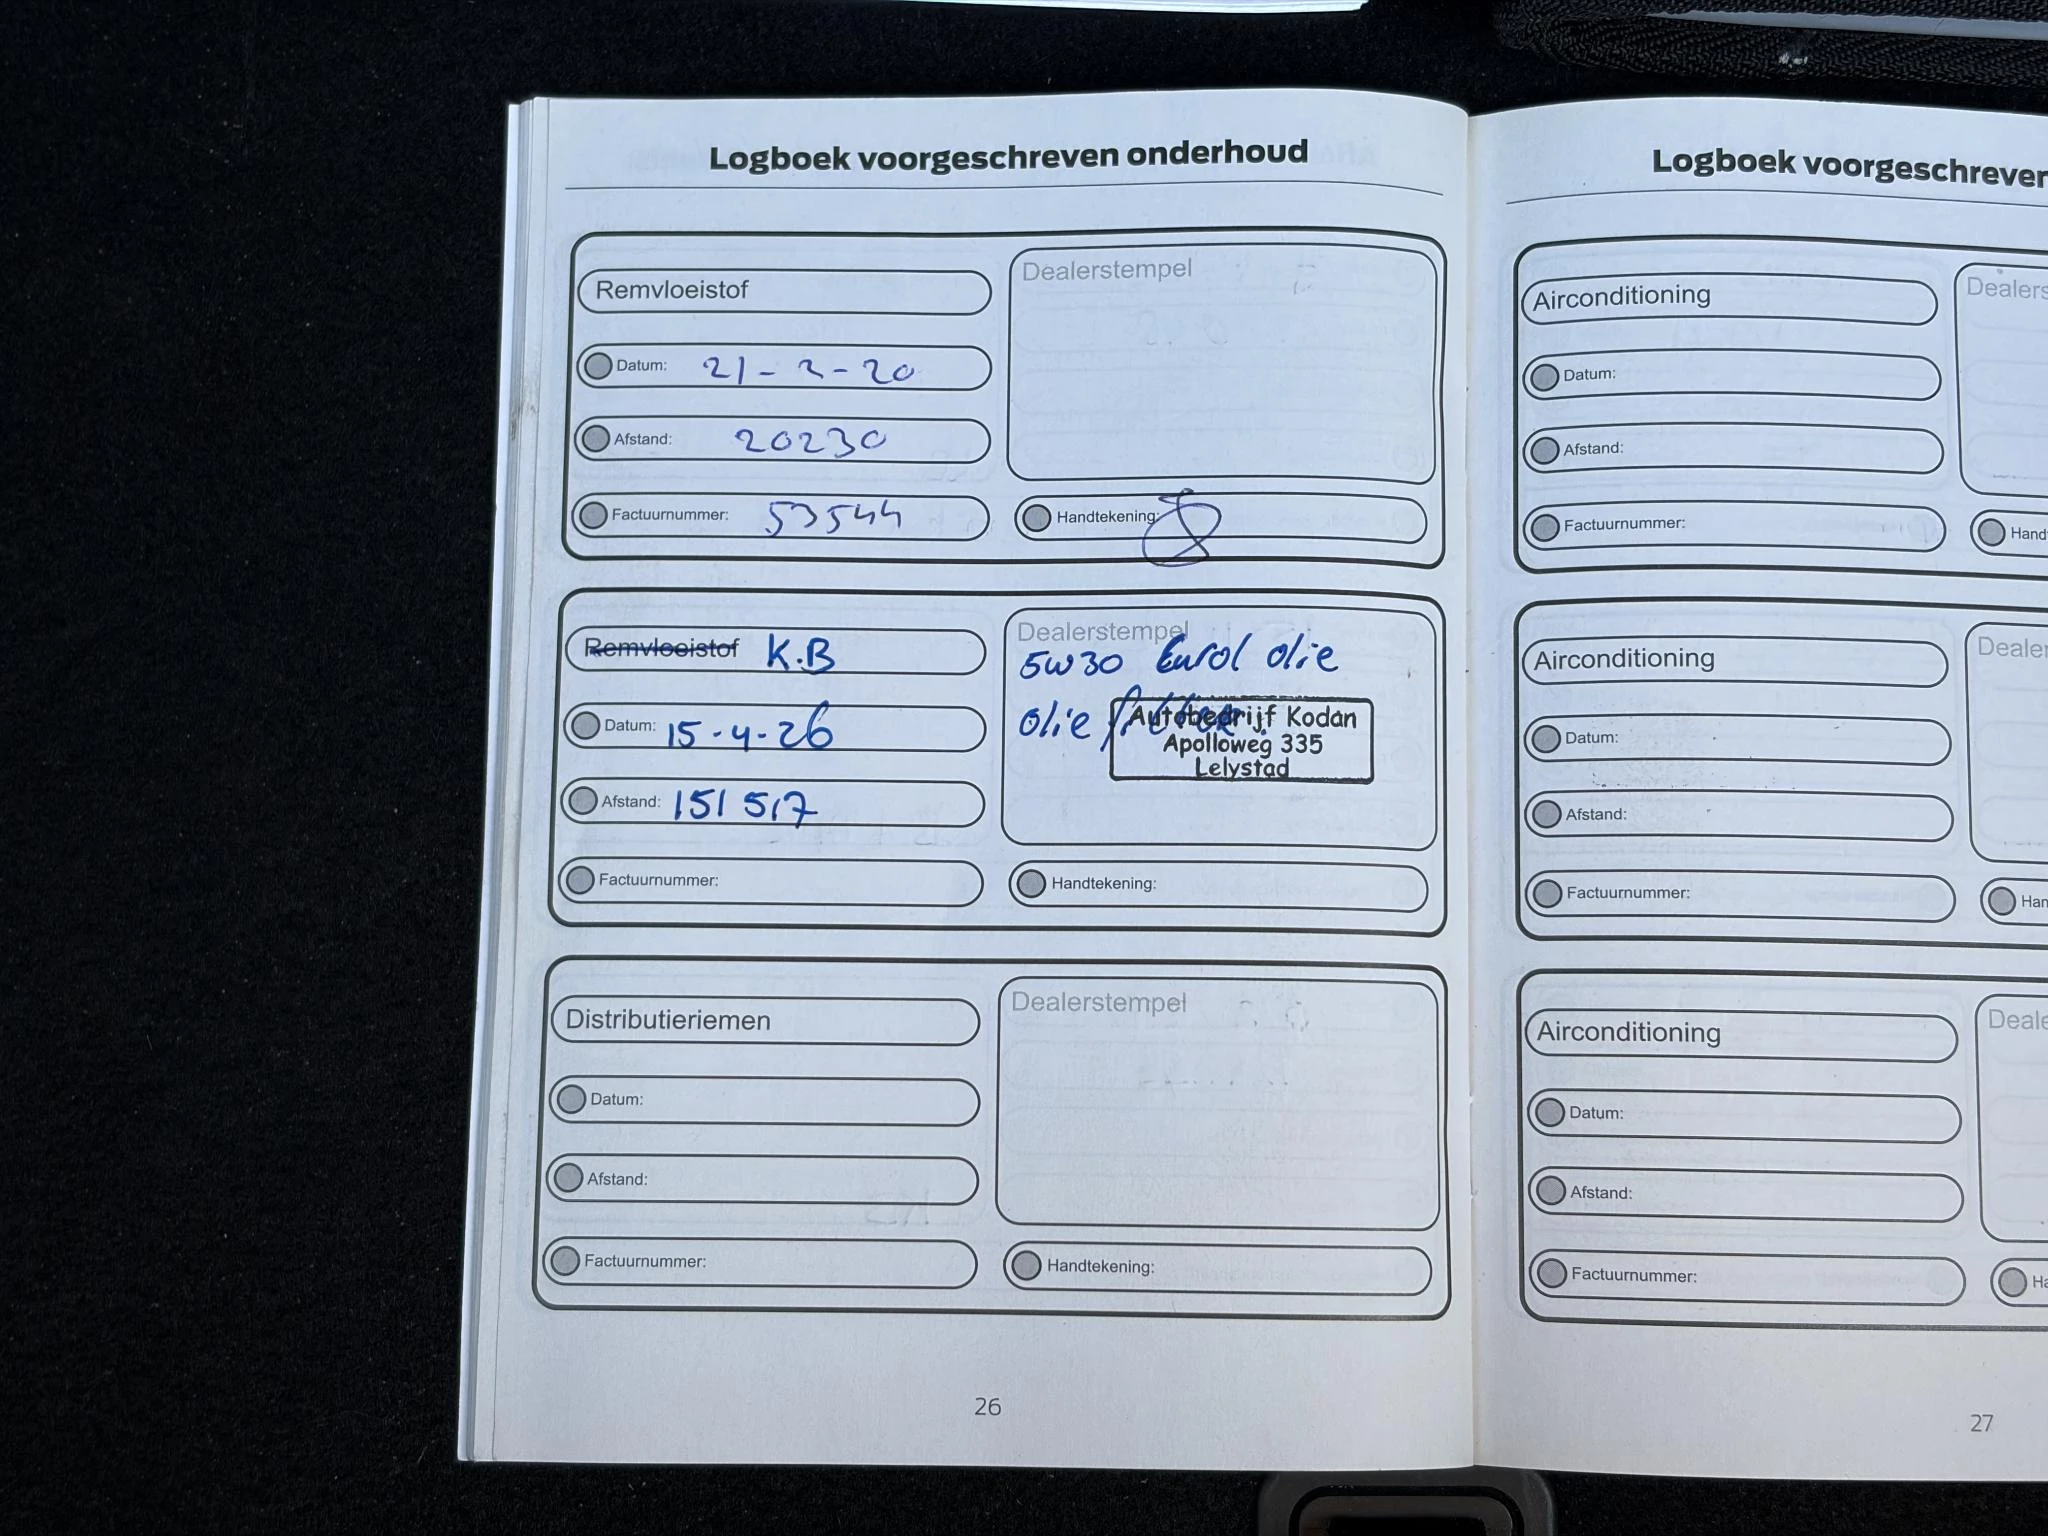 Logboek voorgeschreven onderhoud
Remvloeistof
Datum: 21-2-20
Afstand: 20230
Factuurnummer: 53544
Dealerstempel
Handtekening:
Remvloeistof K.B
Datum: 15-4-26
Afstand: 151517
Factuurnummer:
Dealerstempel
5W30 Eurol olie
olie filter
Autobedrijf Kodan
Apolloweg 335
Lelystad
Handtekening:
Distributieriemen
Datum:
Afstand:
Factuurnummer:
Dealerstempel
Handtekening:
26
Logboek voorgeschreven
Airconditioning
Datum:
Afstand:
Factuurnummer:
Dealers
Hand
Airconditioning
Datum:
Afstand:
Factuurnummer:
Dealer
Han
Airconditioning
Datum:
Afstand:
Factuurnummer:
Deale
Ha
27